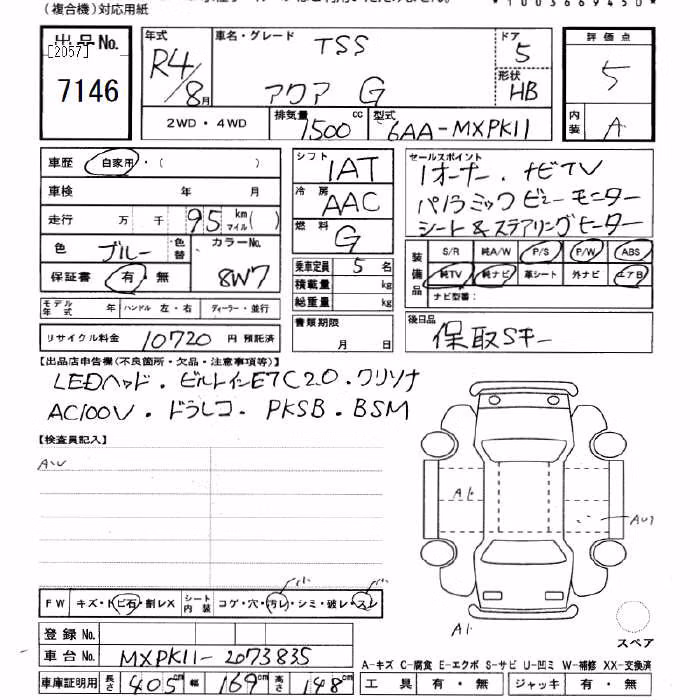 (複合機)対応用紙
*1003669450*
出品No.
[2057]
7146
年式 R4/8月
車名・グレード TSS
アクア G
ドア 5
形状 HB
評価点 5
内装 A
2WD・4WD
排気量 1500 cc
型式 6AA-MXPK11
車歴 自家用・( )
車検 年 月
走行 万 千 95 km マイル( )
色 ブルー 色替 カラーNo. 8W7
保証書 有・無
シフト IAT
冷房 AAC
燃料 G
乗車定員 5 名
積載量 kg
総重量 kg
セールスポイント
1オーナー・ナビTV
パノラミックビューモニター
シート&ステアリングヒーター
装備品 S/R 純A/W P/S P/W ABS
純TV 純ナビ 革シート 外ナビ エアB
ナビ型番:
モデル年式 年 ハンドル 左・右 ディーラー・並行
リサイクル料金 10720 円 預託済
書類期限 月 日
後日品 保取Sキー
【出品店申告欄(不良箇所・欠品・注意事項等)】
LEDヘッド・ビルトインETC2.0・クリソナ
AC100V・ドラレコ・PKSB・BSM
【検査員記入】
A・U
A1
AU1
A1
FW キズ・トビ石・割レX シート内装 コゲ・穴・汚レ・シミ・破レ・スレ
小 小
スペア
登録No.
車台No. MXPK11-2073835
A-キズ C-腐食 E-エクボ S-サビ U-凹ミ W-補修 XX-交換済
車庫証明用 長さ 405cm 幅 169cm 高さ 148cm
工具 有・無 ジャッキ 有・無